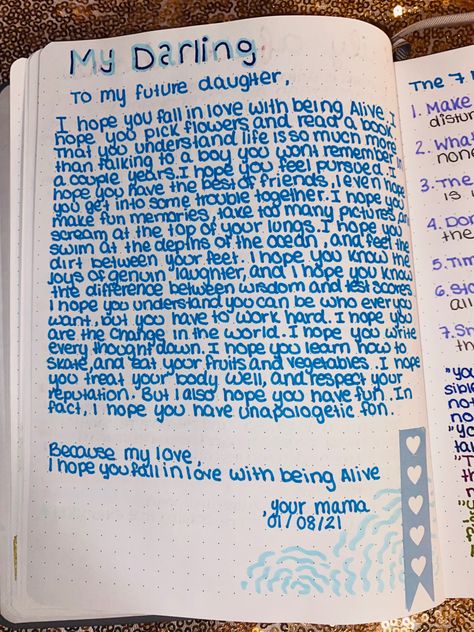 My Darling
To my future daughter,
I hope you fall in love with being Alive. I
hope you pick flowers and read a book.
That you understand life is so much more
than talking to a boy you wont remember in
a couple years. I hope you feel pursued. I
hope you have the best of friends, I even hope
you get into some trouble together. I hope you
make fun memories, take too many pictures, and
scream at the top of your lungs. I hope you
swim at the depths of the ocean, and feel the
dirt between your feet. I hope you know the
joys of genuin laughter, and I hope you know
the difference between wisdom and test scores
I hope you understand you can be who ever you
want, but you have to work hard. I hope you
are the change in the world. I hope you write
every thought down. I hope you learn how to
skate, and eat your fruits and vegetables. I hope
you treat your body well, and respect your
reputation. But I also hope you have fun. In
fact, I hope you have unapologetic fon.
Because my love,
I hope you fall in love with being Alive
, your mama
01/08/21
The 7
1. Make
distur
2. What
none
3. The
is
4. Don
5. Tim
6. Sto
all
7. S
"you
sib
not
no
"Yo
tal
"T